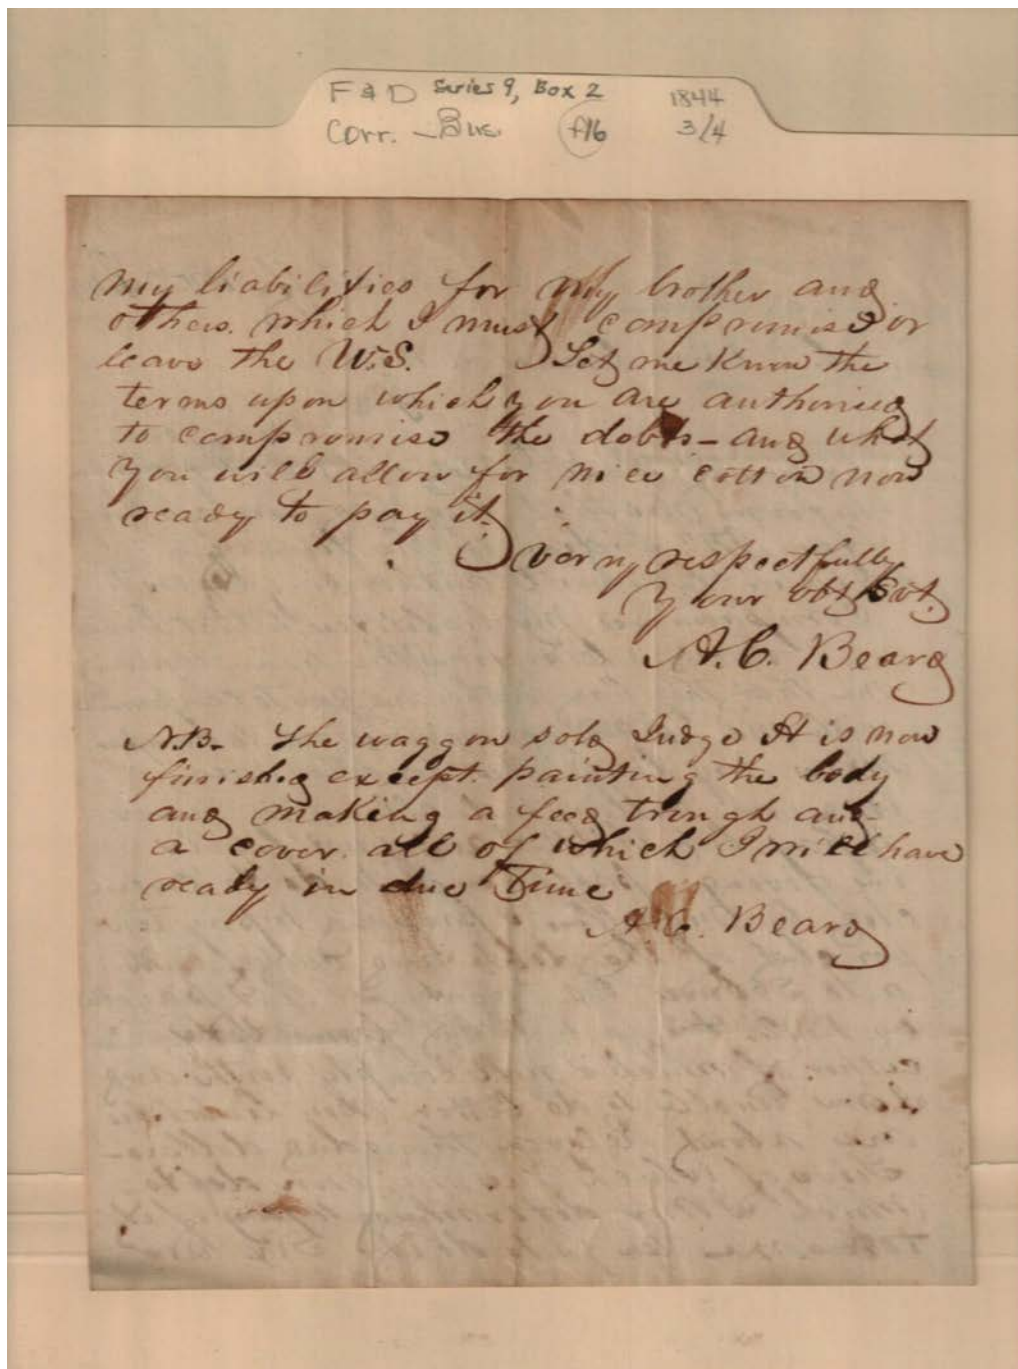 F & D Series 9, Box 2 1844
Corr. - Bus. f16 3/4
my liabilities for my brother and
others. which I must compromise or
leave the W.S. Let me know the
terms upon which you are authorised
to compromise the debts - and what
you will allow for nice cotton now
ready to pay it.
Very respectfully
Your obt Svt.
A.C. Beard
N.B- The waggon sold Judge H is now
finished except painting the body
and making a feed trough and
a cover. all of which I will have
ready in due Time
A.C. Beard